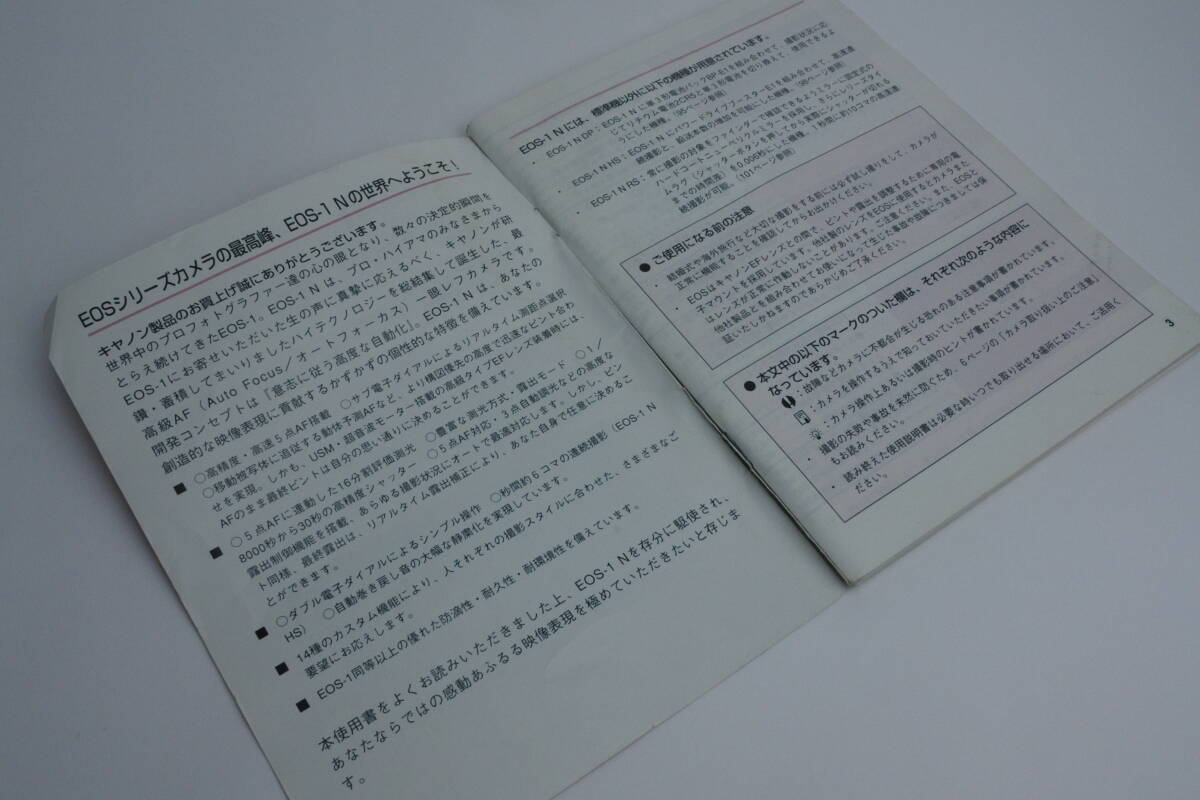 EOSシリーズカメラの最高峰、EOS-1 Nの世界へようこそ！
キヤノン製品のお買上げ誠にありがとうございます。
世界中のプロフォトグラファー達の心の眼となり、数々の決定的瞬間を
とらえ続けてきたEOS-1。EOS-1 Nは、プロ・ハイアマのみなさまから
EOS-1にお寄せいただいた生の声に真摯に応えるべく、キヤノンが研
鑽・蓄積してまいりましたハイテクノロジーを総結集して誕生した、最
高級AF（Auto Focus/オートフォーカス）一眼レフカメラです。
開発コンセプトは『意志に従う高度な自動化』。EOS-1 Nは、あなたの
創造的な映像表現に貢献するかずかずの個性的な特徴を備えています。
■ ○高精度・高速5点AF搭載 ○サブ電子ダイアルによるリアルタイム測距点選択
○移動被写体に追従する動体予測AFなど、より構図優先の高度で迅速なピント合わ
せを実現。しかも、USM・超音波モーター搭載の高級タイプEFレンズ装着時には、
AFのまま最終ピントは自分の思い通りに決めることができます。
■ ○5点AFに連動した16分割評価測光 ○豊富な測光方式・露出モード ○1/
8000秒から30秒の高精度シャッター ○5点AF対応・3点自動調光などの高度な
露出制御機能を搭載、あらゆる撮影状況にオートで最適対応します。しかし、ピン
ト同様、最終露出は、リアルタイム露出補正により、あなた自身で任意に決めるこ
とができます。
■ ○ダブル電子ダイアルによるシンプル操作 ○秒間約6コマの連続撮影（EOS-1 N
HS） ○自動巻き戻し音の大幅な静粛化を実現しています。
■ 14種のカスタム機能により、人それぞれの撮影スタイルに合わせた、さまざまなご
要望にお応えします。
■ EOS-1同等以上の優れた防滴性・耐久性・耐環境性を備えています。
本使用書をよくお読みいただきました上、EOS-1 Nを存分に駆使され、
あなたならではの感動あふるる映像表現を極めていただきたいと存じま
す。
EOS-1 Nには、標準機以外に以下の機種が用意されています。
・ EOS-1 N DP：EOS-1 Nに単3形電池パックBP-E1を組み合わせて、撮影状況に応
じてリチウム電池2CR5と単3形電池を切り換えて、使用できるよ
うにした機種。（95ページ参照）
・ EOS-1 N HS：EOS-1 NにパワードライブブースターE1を組み合わせて、高速連
続撮影と、給送本数の増加を可能にした機種。（98ページ参照）
・ EOS-1 N RS：常に撮影の対象をファインダーで確認できるようミラーに固定式の
ハードコートニューペリクルミラーを採用し、さらにレリーズタイ
ムラグ（シャッターボタンを押してから実際にシャッターが切れる
までの時間差）を0.006秒にした機種。1秒間に約10コマの高速連
続撮影が可能。（101ページ参照）
● ご使用になる前の注意
・ 結婚式や海外旅行など大切な撮影をする前には必ず試し撮りをして、カメラが
正常に機能することを確認してからお出かけください。
・ EOSはキヤノンEFレンズとの間で、ピントや露出を調整するために専用の電
子マウントを採用しています。他社製のレンズをEOSに使用するとカメラまた
はレンズが正常に作動しないことがあります、ご注意ください。また、EOSと
他社製品を組み合わせてお使いになって生じた事故や故障につきましては保
証いたしかねますのであらかじめご了承ください。
● 本文中の以下のマークのついた欄は、それぞれ次のような内容に
なっています。
：故障などカメラに不都合が生じる恐れのある注意事項が書かれています。
：カメラを操作するうえで知っておいていただきたい事項が書かれています。
：カメラ操作上あるいは撮影時のヒントが書かれています。
・ 撮影の失敗や事故を未然に防ぐため、6ページの「カメラ取り扱い上のご注意」
もお読みください。
・ 読み終えた使用説明書は必要な時いつでも取り出せる場所において、ご活用く
ださい。
3